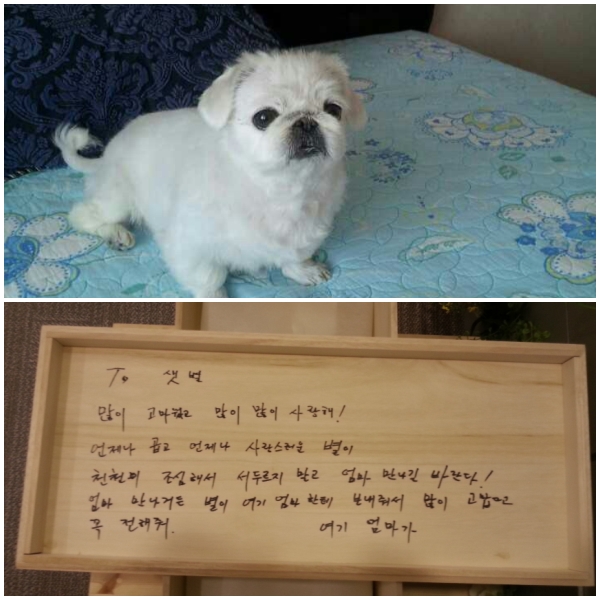 To 샛별
많이 고마웠고 많이 많이 사랑해!
언제나 곱고 언제나 사랑스러운 별이
천천히 조심해서 서두르지 말고 엄마 만나길 바란다!
엄마 만나거든 별이 여기 엄마한테 보내줘서 많이 고맙다고
꼭 전해줘. 여기 엄마가